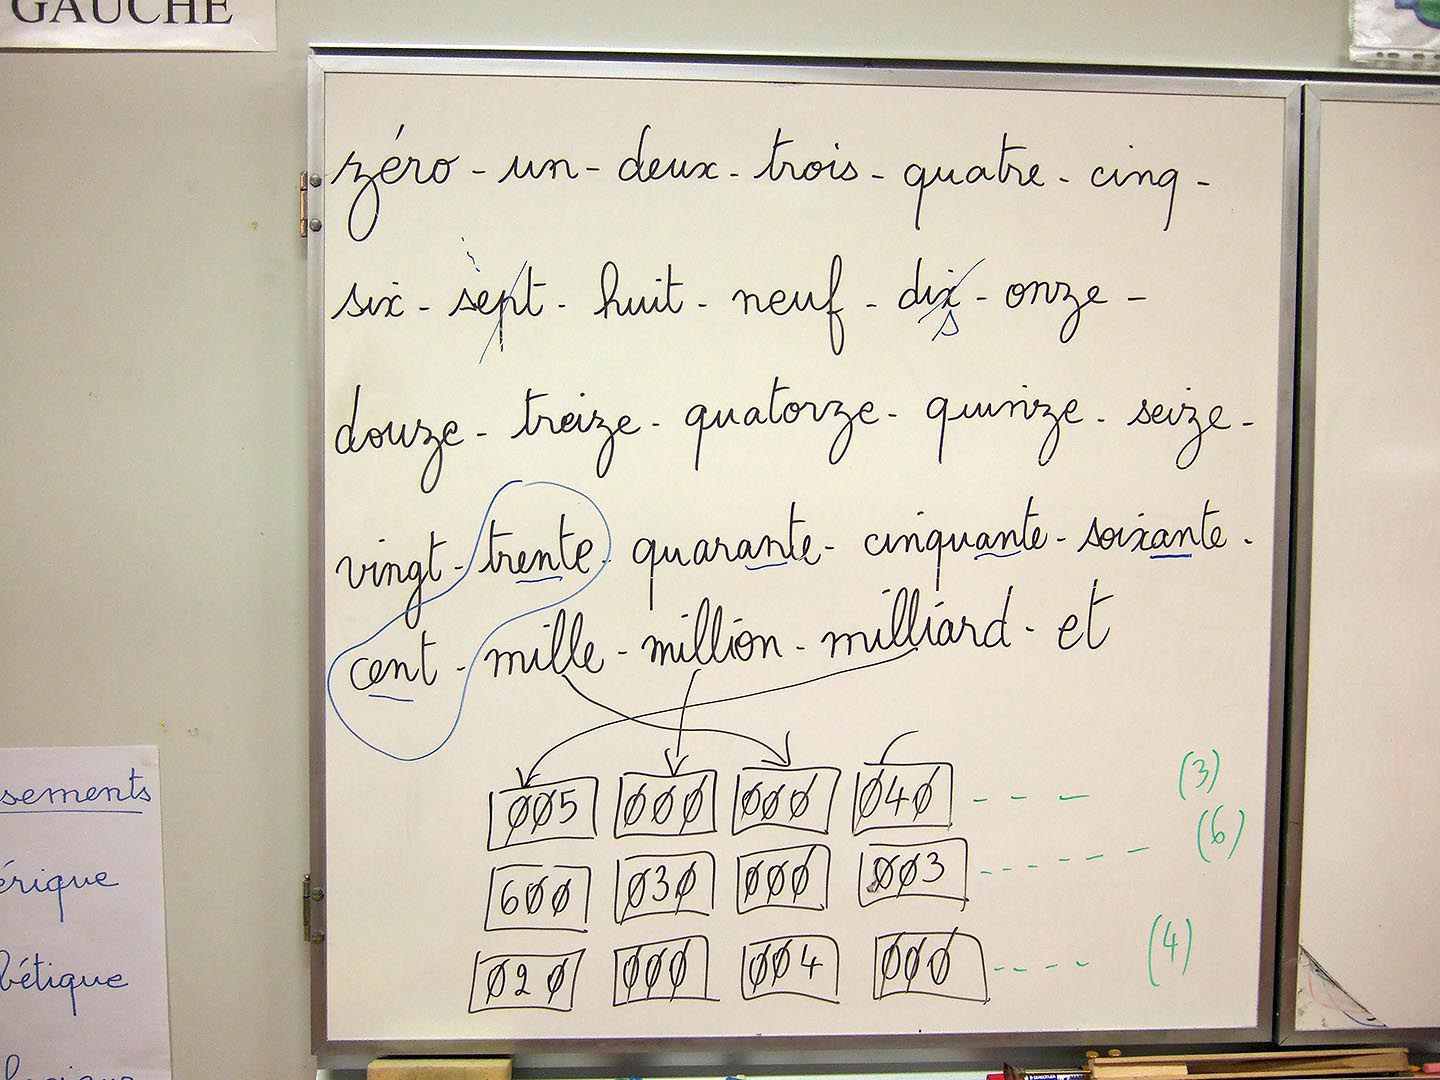 GAUCHE
zéro - un - deux - trois - quatre - cinq -
six - sept - huit - neuf - dix - onze -
s
douze - treize - quatorze - quinze - seize -
vingt - trente - quarante - cinquante - soixante -
cent - mille - million - milliard - et
005 000 000 040 - - - (3)
600 030 000 003 - - - - - - (6)
020 000 004 000 - - - - (4)
sements
érique
bétique